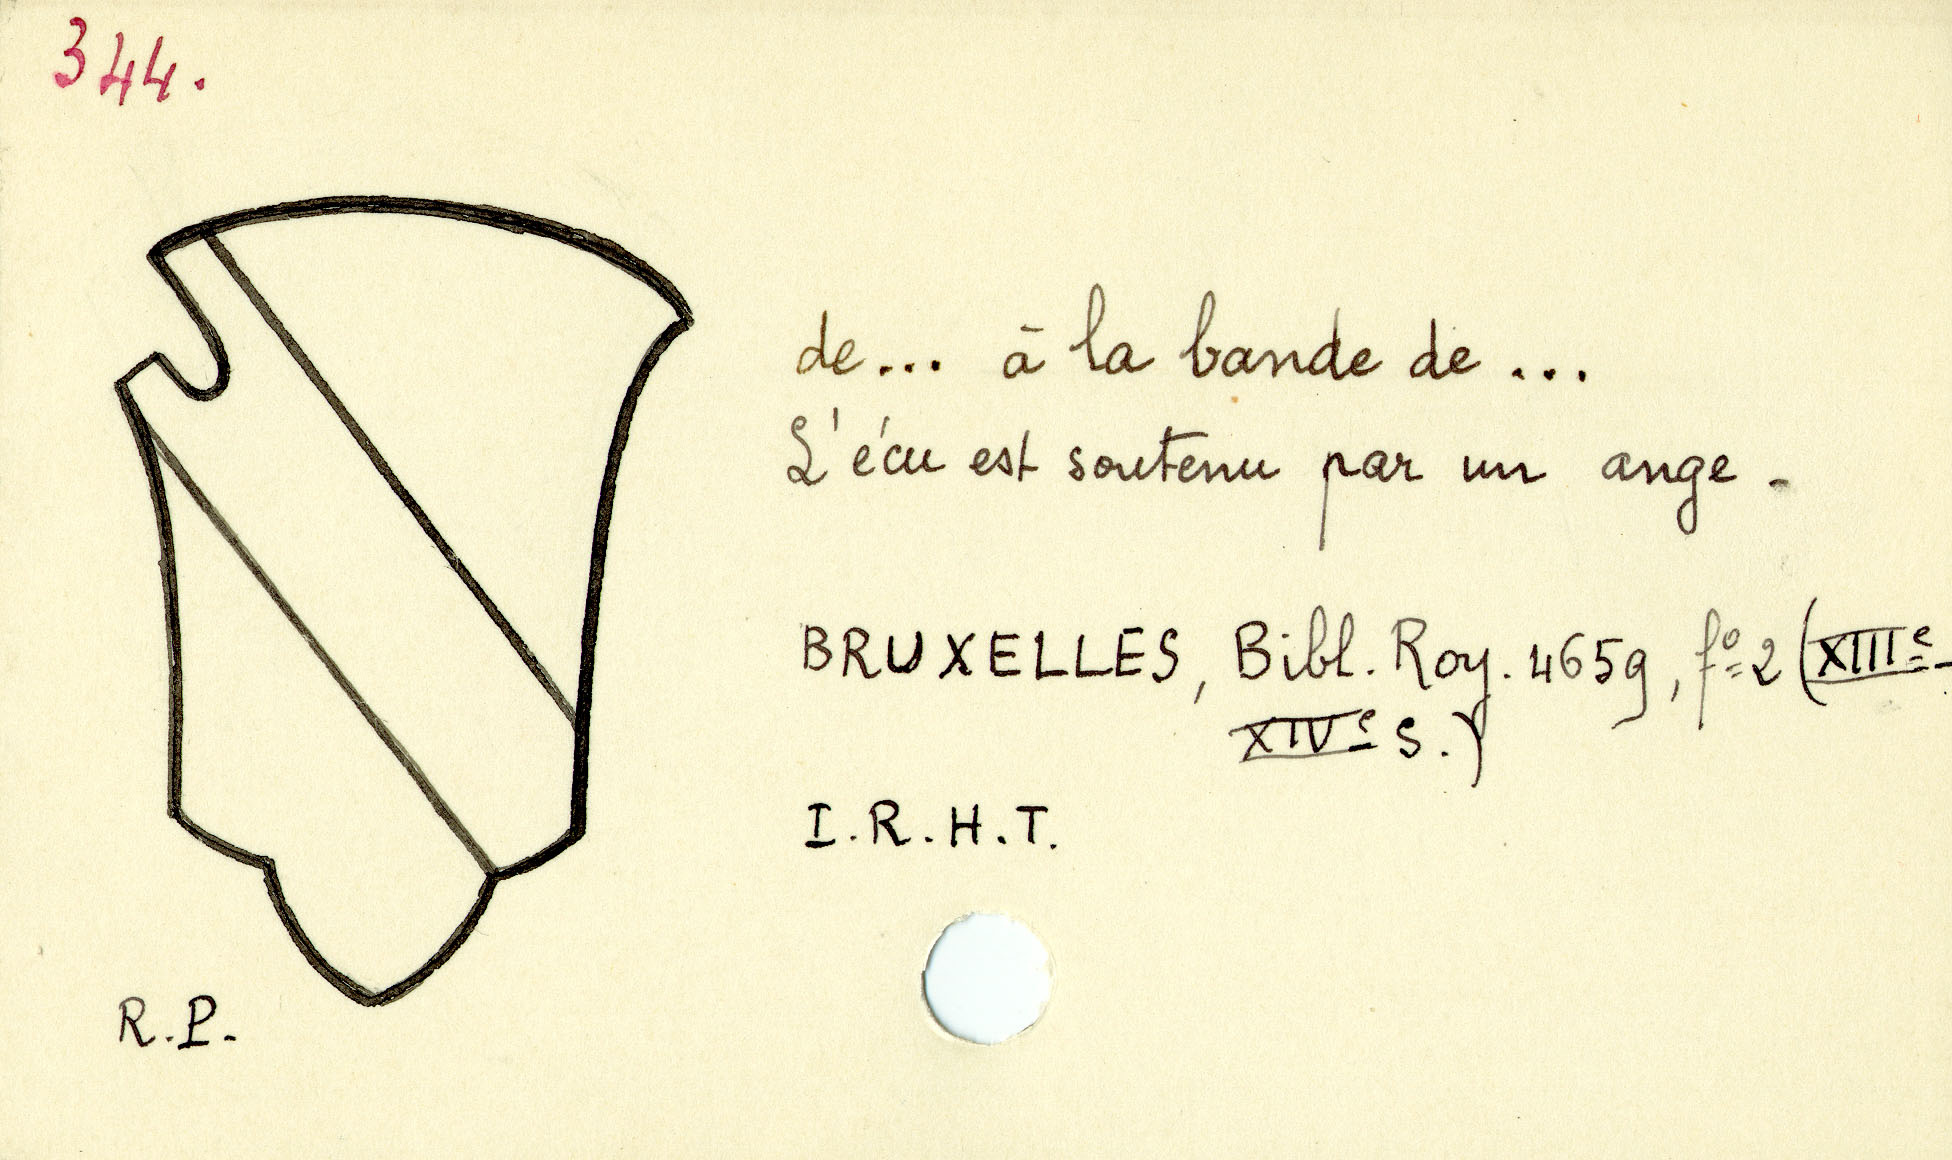 344.
de... à la bande de ...
L'écu est soutenu par un ange.
BRUXELLES, Bibl. Roy. 4659, fº 2 (XIIIe-
XIVe s.)
I.R.H.T.
R.P.